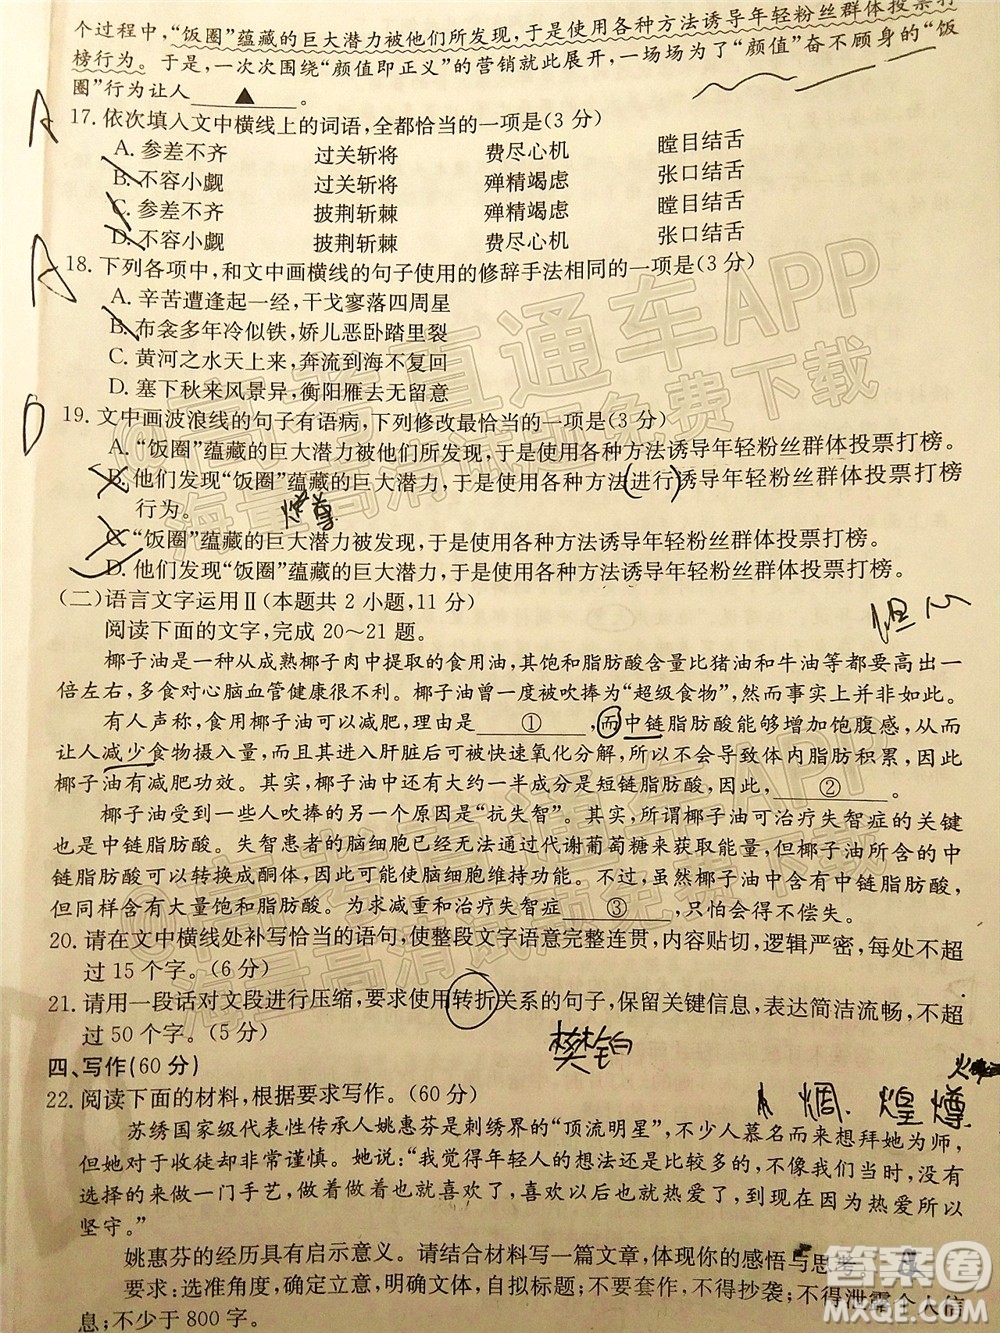 个过程中,“饭圈”蕴藏的巨大潜力被他们所发现,于是使用各种方法诱导年轻粉丝群体投票打
榜行为。于是,一次次围绕“颜值即正义”的营销就此展开,一场场为了“颜值”奋不顾身的“饭
圈”行为让人▲。
17.依次填入文中横线上的词语,全都恰当的一项是(3分)
A.参差不齐 过关斩将 费尽心机 瞠目结舌
B.不容小觑 过关斩将 殚精竭虑 张口结舌
C.参差不齐 披荆斩棘 殚精竭虑 瞠目结舌
D.不容小觑 披荆斩棘 费尽心机 张口结舌
18.下列各项中,和文中画横线的句子使用的修辞手法相同的一项是(3分)
A.辛苦遭逢起一经,干戈寥落四周星
B.布衾多年冷似铁,娇儿恶卧踏里裂
C.黄河之水天上来,奔流到海不复回
D.塞下秋来风景异,衡阳雁去无留意
19.文中画波浪线的句子有语病,下列修改最恰当的一项是(3分)
A.“饭圈”蕴藏的巨大潜力被他们所发现,于是使用各种方法诱导年轻粉丝群体投票打榜。
B.他们发现“饭圈”蕴藏的巨大潜力,于是使用各种方法进行诱导年轻粉丝群体投票打榜
行为。
C.“饭圈”蕴藏的巨大潜力被发现,于是使用各种方法诱导年轻粉丝群体投票打榜。
D.他们发现“饭圈”蕴藏的巨大潜力,于是使用各种方法诱导年轻粉丝群体投票打榜。
(二)语言文字运用Ⅱ(本题共2小题,11分)
阅读下面的文字,完成20~21题。
椰子油是一种从成熟椰子肉中提取的食用油,其饱和脂肪酸含量比猪油和牛油等都要高出一
倍左右,多食对心脑血管健康很不利。椰子油曾一度被吹捧为“超级食物”,然而事实上并非如此。
有人声称,食用椰子油可以减肥,理由是①,而中链脂肪酸能够增加饱腹感,从而
让人减少食物摄入量;而且其进入肝脏后可被快速氧化分解,所以不会导致体内脂肪积累,因此
椰子油有减肥功效。其实,椰子油中还有大约一半成分是短链脂肪酸,因此,②。
椰子油经常被一些人吹捧的另一个原因是“抗失智”。他们说,椰子油可治疗失智症的关键
也是中链脂肪酸。失智症患者的脑细胞已经无法通过代谢葡萄糖来获取能量,但椰子油所含的中
链脂肪酸可以转换成酮体,因此可以给脑细胞维持机能。不过,虽然椰子油中含有中链脂肪酸,
但同样含有大量饱和脂肪酸。为求减重和治疗失智症③,只怕会得不偿失。
20.请在文中横线处补写恰当的语句,使整段文字语意完整连贯,内容贴切,逻辑严密,每处不超
过15个字。(6分)
21.请用一段话对文段进行压缩,要求使用转折关系的句子,保留关键信息,表达简洁流畅,不超
过50个字。(5分)
四、写作(60分)
22.阅读下面的材料,根据要求写作。(60分)
苏绣国家级代表性传承人姚惠芬是刺绣界的“顶流明星”,不少人慕名而来想拜她为师,
但她对于收徒却非常谨慎。她说:“我觉得年轻人的想法还是比较多的,不能勉强。当时,没有
选择的来做一门手艺,做着做着也就喜欢了,喜欢了也就热爱了,到现在因为热爱所以
坚守。”
姚惠芬的经历具有启示意义。请结合材料写一篇文章,体现你的感悟与思考。
要求:选准角度,确定立意,明确文体,自拟标题;不要套作,不得抄袭;不得泄露个人信
息;不少于800字。